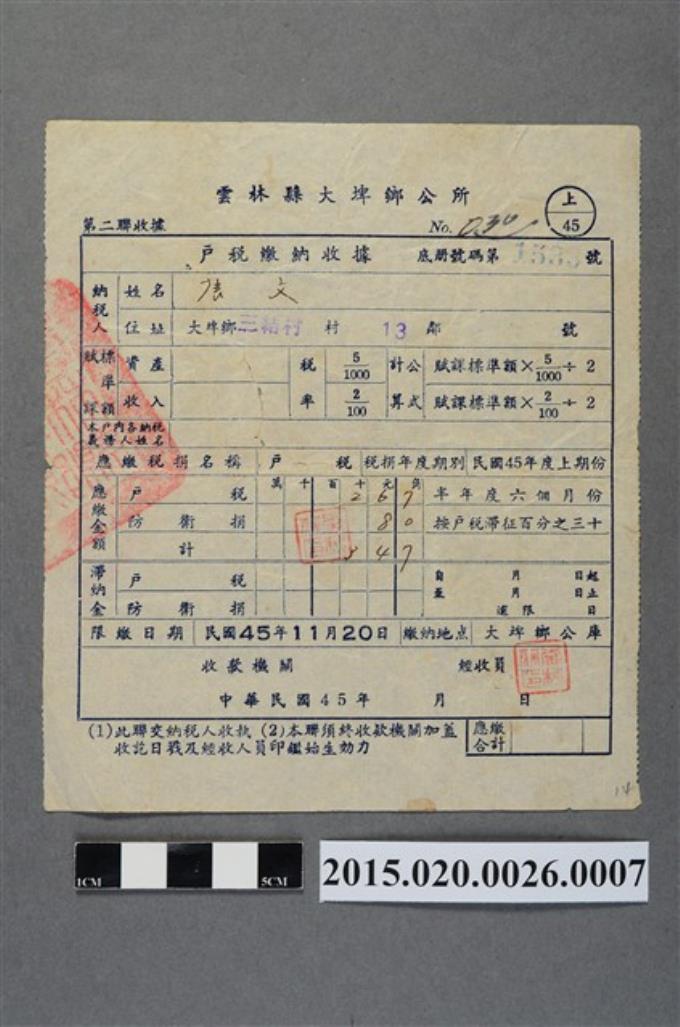 雲林縣大埤鄉公所
上
45
第二聯收據
No.
戶稅繳納收據 底册號碼第 號
納稅人 姓名 張文
住址 大埤鄉三結村 村 13 鄰 號
賦課標準額 資產 稅率 5/1000 計算公式 賦課標準額×5/1000÷2
收入 2/100 賦課標準額×2/100÷2
本戶內各納稅義務人姓名
應繳稅捐名稱 戶稅 稅捐年度期別 民國45年度上期份
萬千百十元角
應繳金額 戶稅 267 半年度六個月份
防衛捐 80 按戶稅滯征百分之三十
計 347
滯納金 戶稅 自 月 日起
至 月 日止
防衛捐 逾限 日
限繳日期 民國45年11月20日 繳納地点 大埤鄉公庫
收款機關 經收員
中華民國45年 月 日
(1)此聯交納稅人收執 (2)本聯須終收款機關加蓋
收訖日戳及經收人員印鑑始生効力
應繳合計
14
1CM 5CM
2015.020.0026.0007